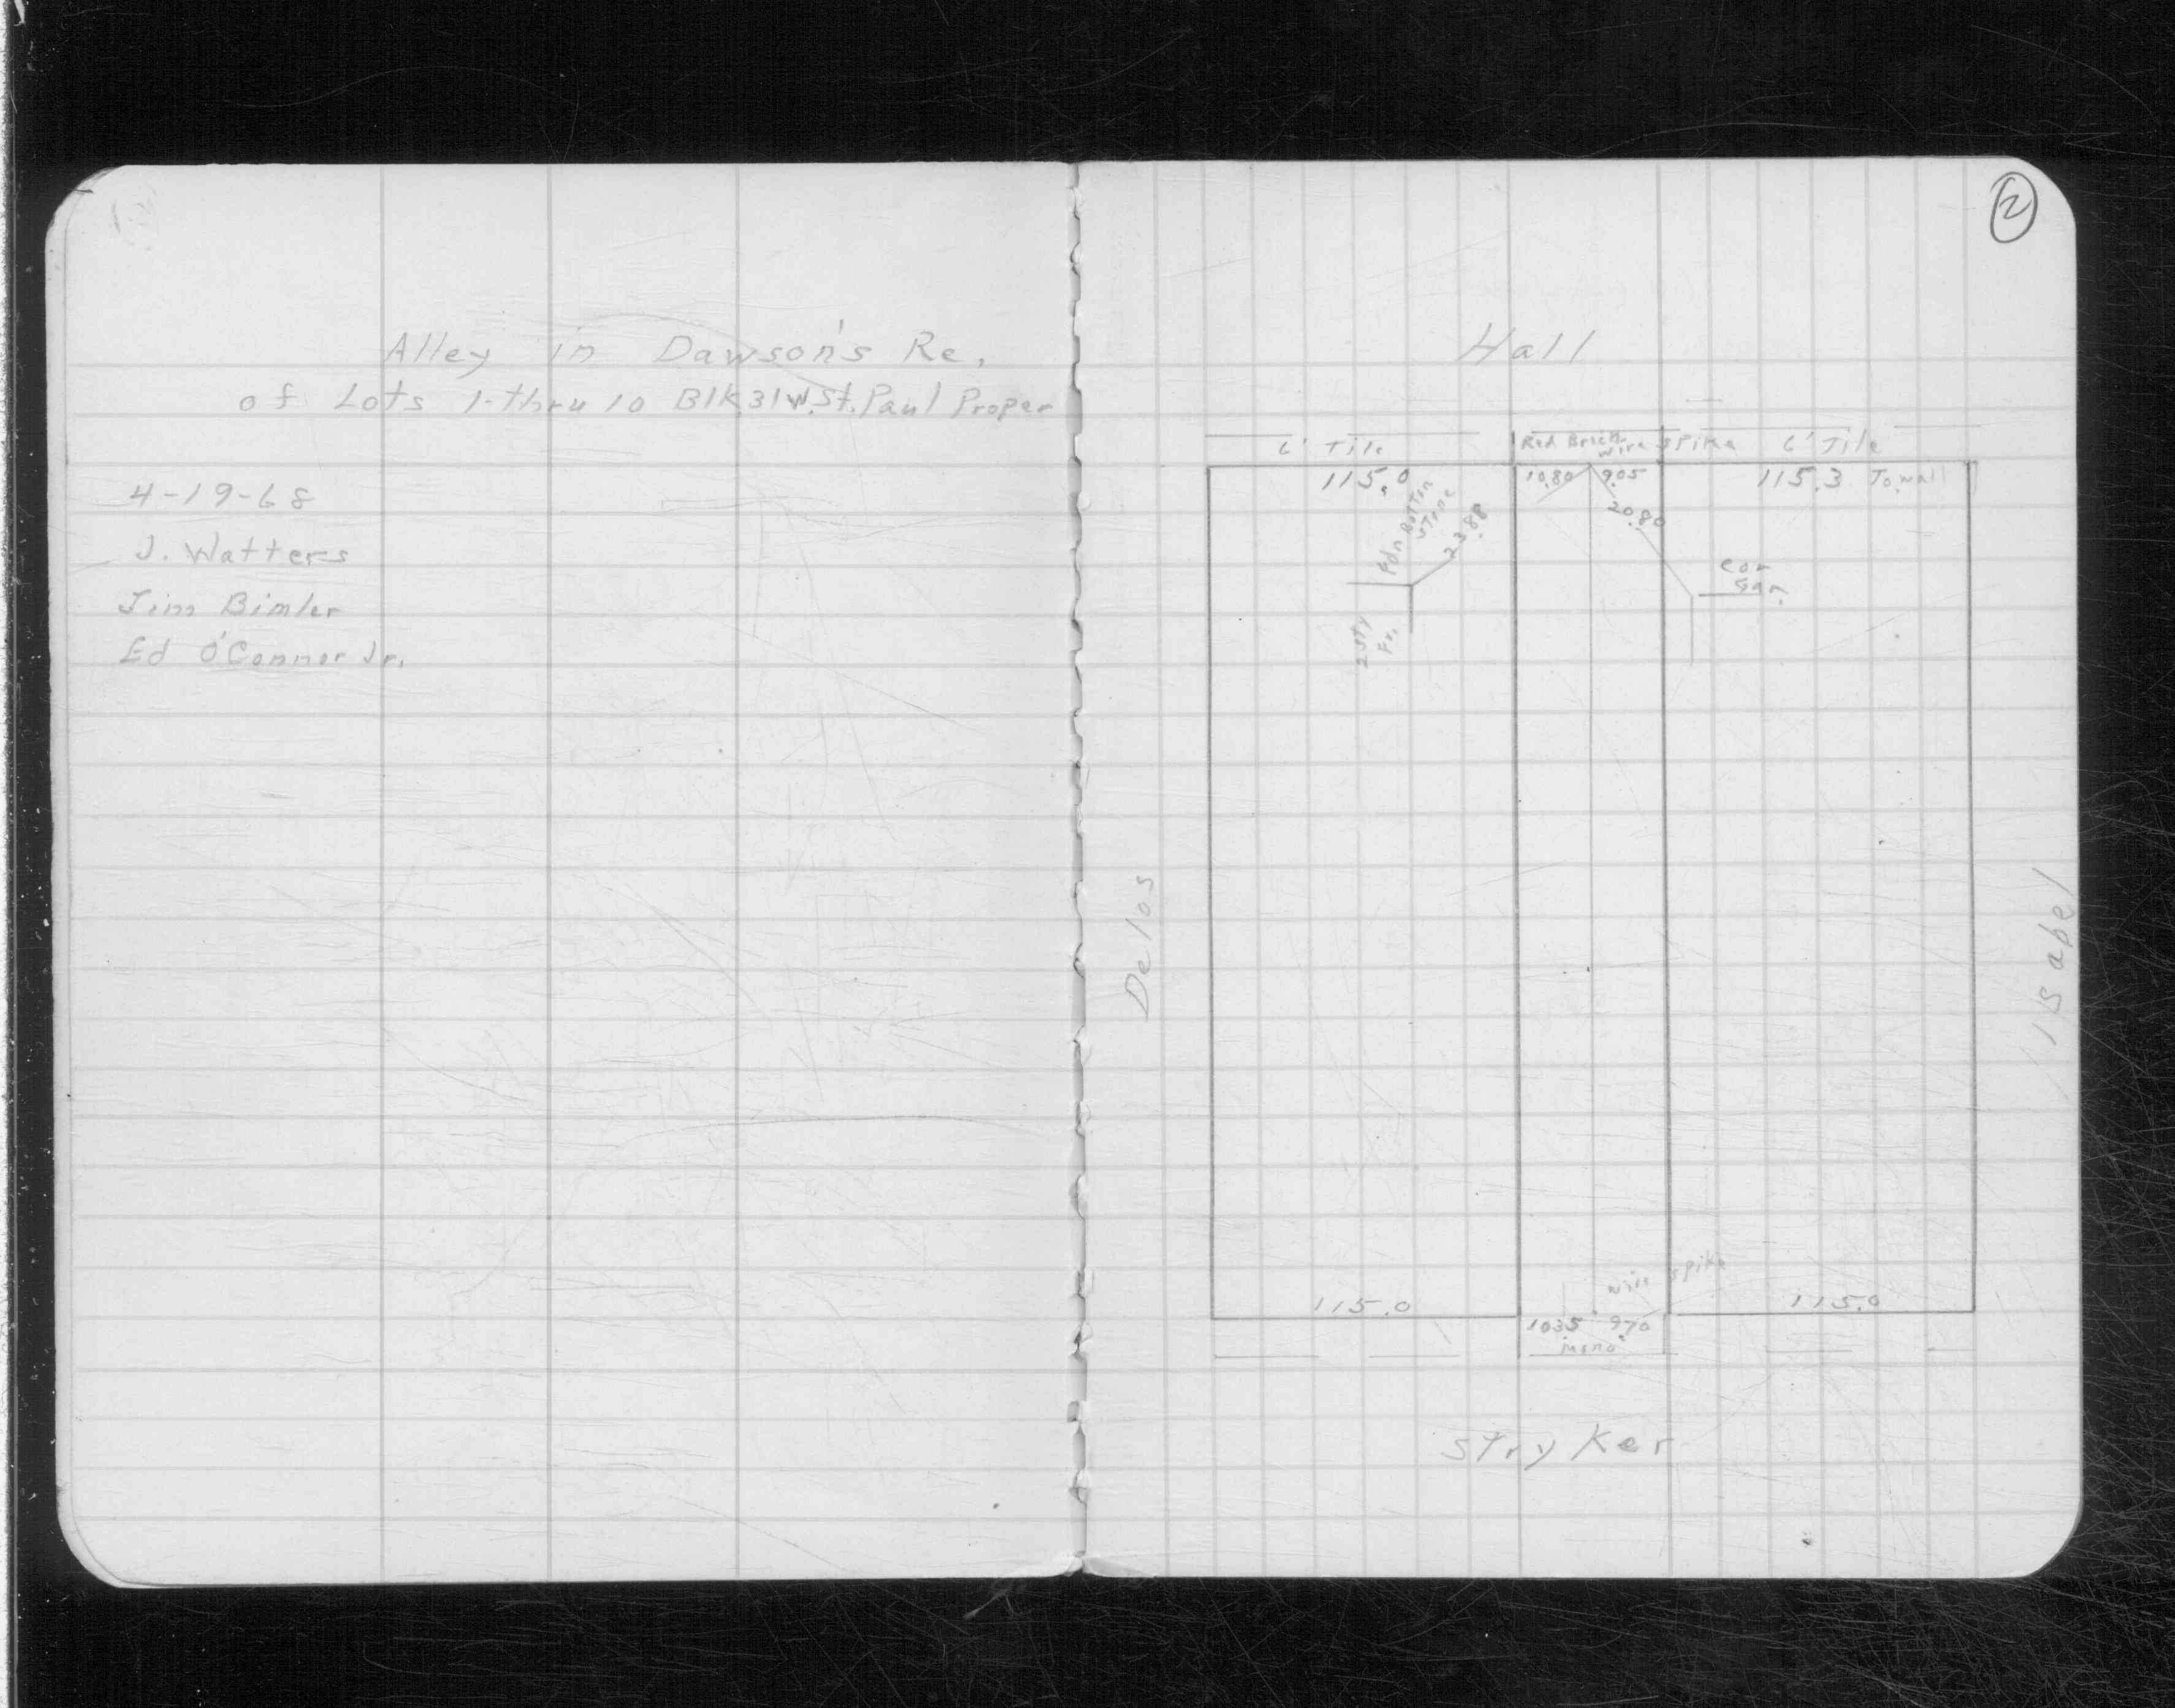 Alley in Dawson's Re.
of Lots 1-thru 10 Blk 31 W. St. Paul Proper
4-19-68
J. Watters
Jim Bimler
Ed O'Connor Jr.
2
Hall
6' Tile
Red Brick
wire spike
6' Tile
115.0
10.80
9.05
115.3 To wall
20.80
23.88
Stone
2 Sty
Fr.
Cor
Gar.
Delos
Isabel
wire spike
115.0
115.0
10.35
9.70
mono
Stryker